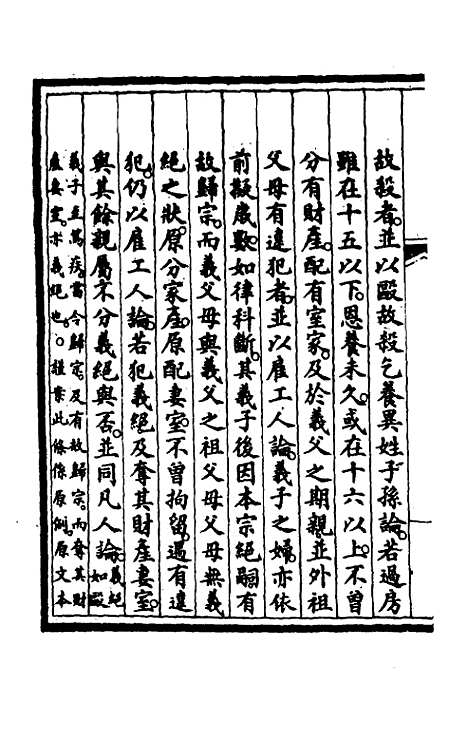 故殺者。並以毆故殺乞養異姓子孫論。若過房
雖在十五以下。恩養未久。或在十六以上。不曾
分有財產。配有室家。及於義父之期親。並外祖
父母有違犯者。並以雇工人論。義子之婦。亦依
前擬歲數。如律科斷。其義子後因本宗絕嗣有
故歸宗。而義父母與義父之祖父母父母無義
絕之狀。原分家產。原配妻室。不曾拘留。遇有違
犯。仍以雇工人論。若犯義絕及奪其財產妻室。
與其餘親屬不分義絕與否。並同凡人論。義絕如毆
義子至篤疾當令歸宗。及有故歸宗。而奪其財
產妻室。亦義絕也。。謹案此條係原例。原文本